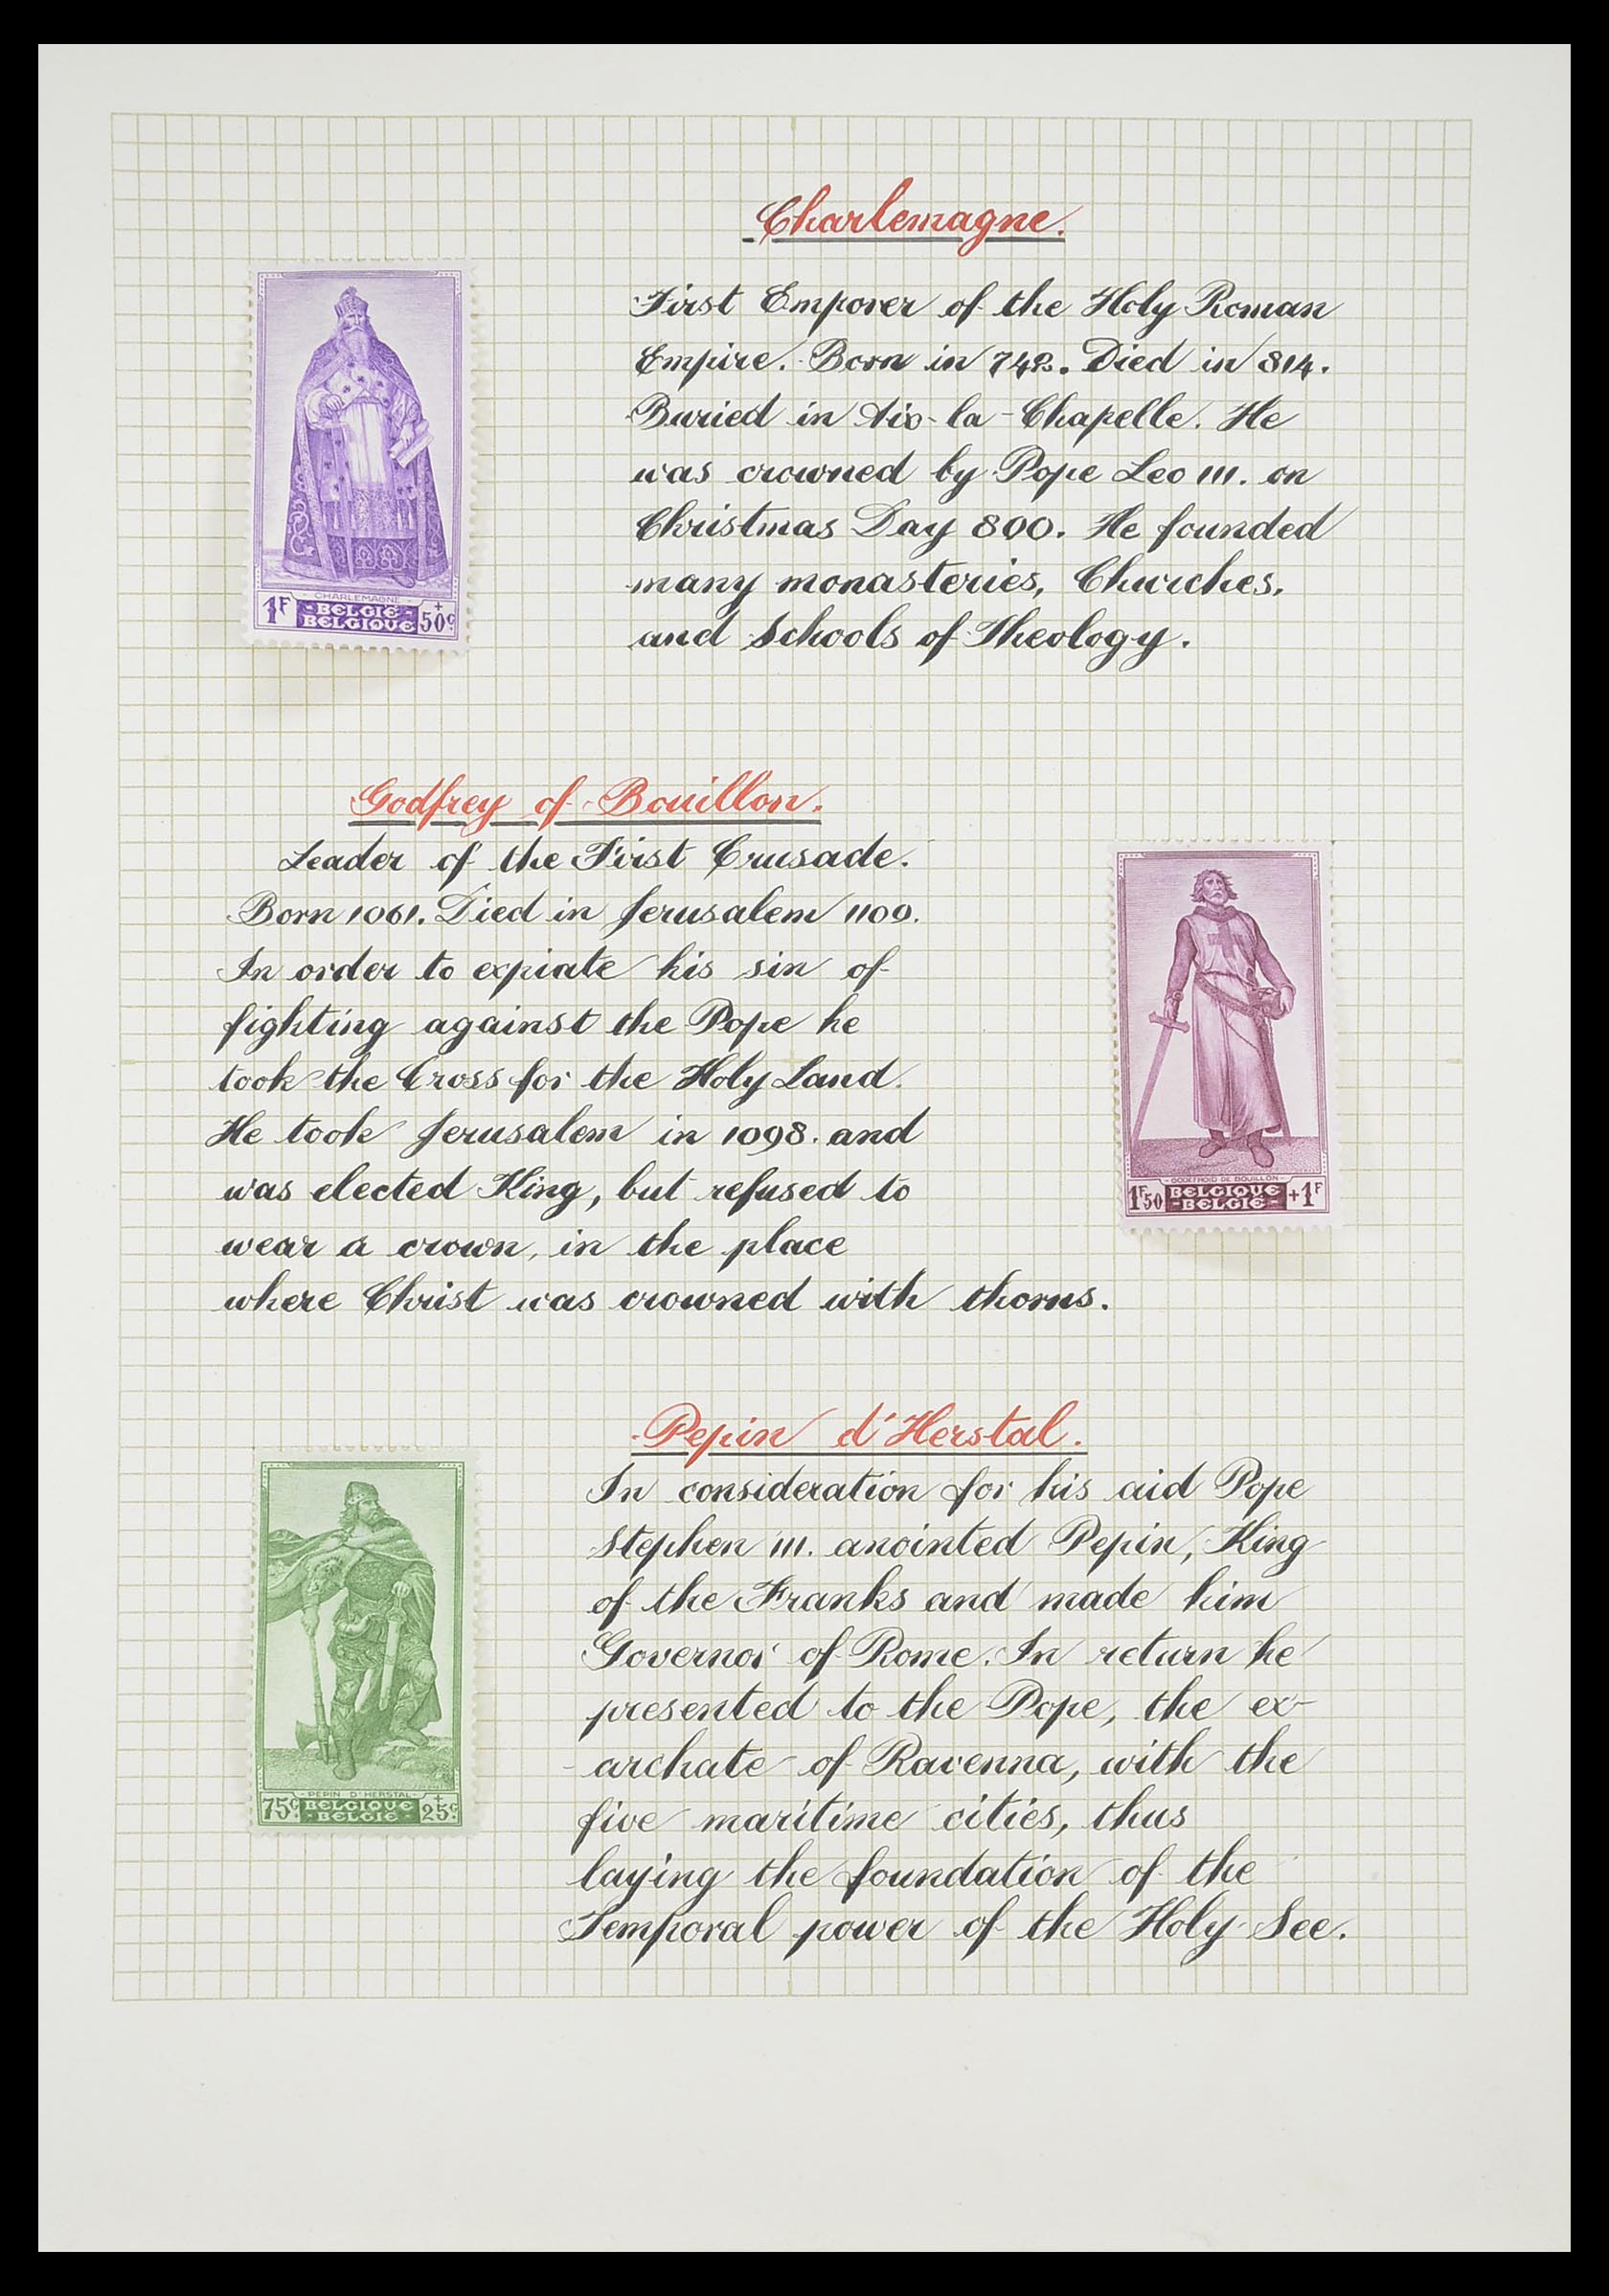 Charlemagne.
First Emporer of the Holy Roman
Empire. Born in 742. Died in 814.
Buried in Aix-la-Chapelle. He
was crowned by Pope Leo III. on
Christmas Day 800. He founded
many monasteries, Churches,
and Schools of Theology.
CHARLEMAGNE
1F BELGIE BELGIQUE +50c
Godfrey of Bouillon.
Leader of the First Crusade.
Born 1061. Died in Jerusalem 1100.
In order to expiate his sin of
fighting against the Pope he
took the Cross for the Holy Land.
He took Jerusalem in 1098. and
was elected King, but refused to
wear a crown, in the place
where Christ was crowned with thorns.
GODEFROID DE BOUILLON
1F50 BELGIQUE BELGIË +1F
Pepin d'Herstal.
In consideration for his aid Pope
Stephen III. anointed Pepin, King
of the Franks and made him
Governor of Rome. In return he
presented to the Pope, the ex-
archate of Ravenna, with the
five maritime cities, thus
laying the foundation of the
Temporal power of the Holy See.
PEPIN D'HERSTAL
75c BELGIQUE BELGIË +25c